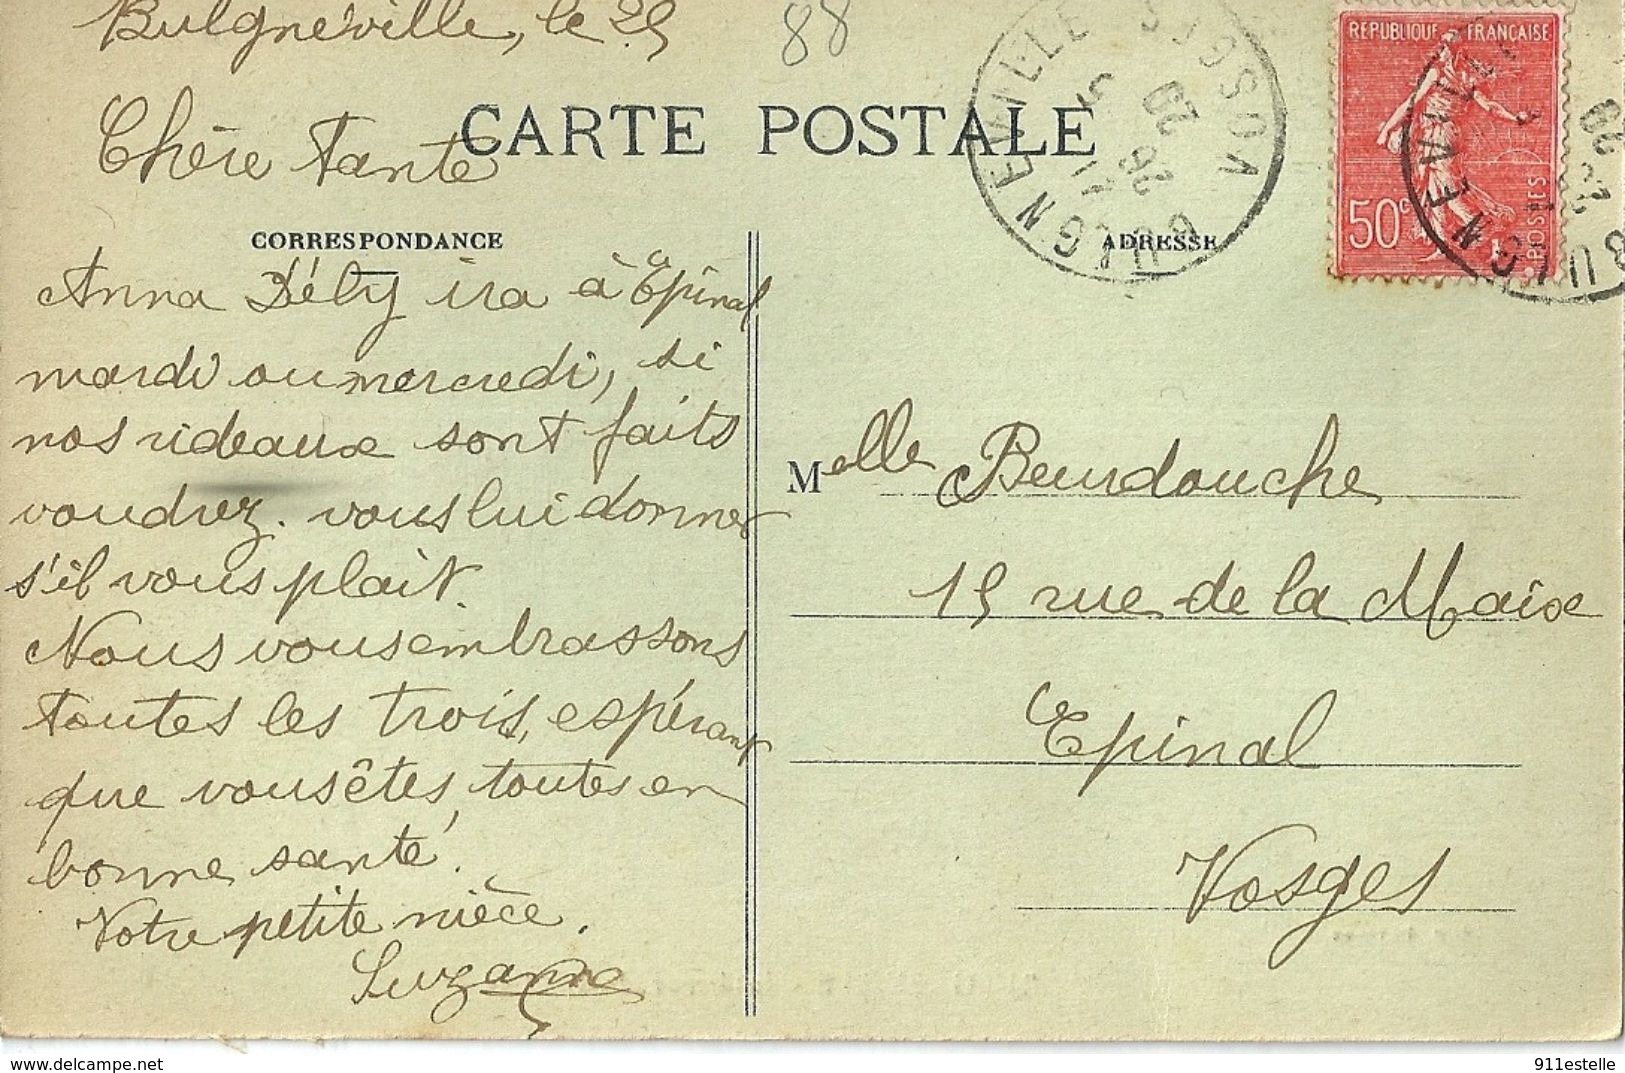 Bulgnéville, le 25
88
Chère Tante
CARTE POSTALE
CORRESPONDANCE
ADRESSE
Anna Dély ira à Epinal
mardi ou mercredi, si
nos rideaux sont faits
voudrez-vous lui donner
s'il vous plait.
Nous vous embrassons
toutes les trois, espérant
que vous êtes, toutes en
bonne santé.
Votre petite nièce.
Suzanne
Melle Beurdouche
15 rue de la Maix
Epinal
Vosges
BULGNEVILLE VOSGES
REPUBLIQUE FRANÇAISE
50c
POSTES
BULGNEVILLE
http://www.delcampe.net
911estelle